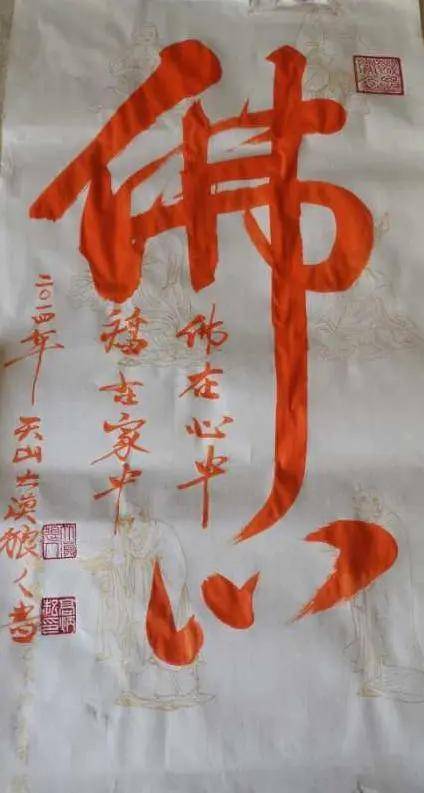 佛心
佛在心中
福在家中
二〇一四年 天山大漠狼人書